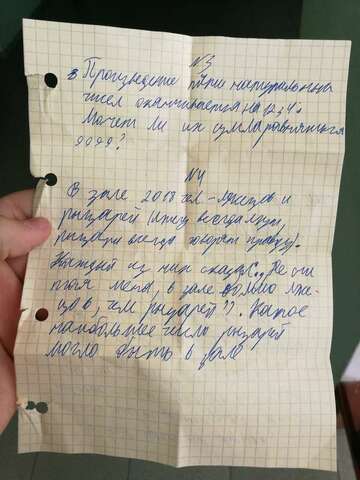 №3
Произведение пяти натуральных
чисел оканчивается на 1234.
Может ли их сумма равняться
9999?
№4
В зале 2018 чел - лжецов и
рыцарей (лжец всегда лжёт,
рыцари всегда говорят правду).
Каждый из них сказал: „Не считая
меня, в зале больше лже-
цов, чем рыцарей". Какое
наибольшее число рыцарей
могло быть в зале